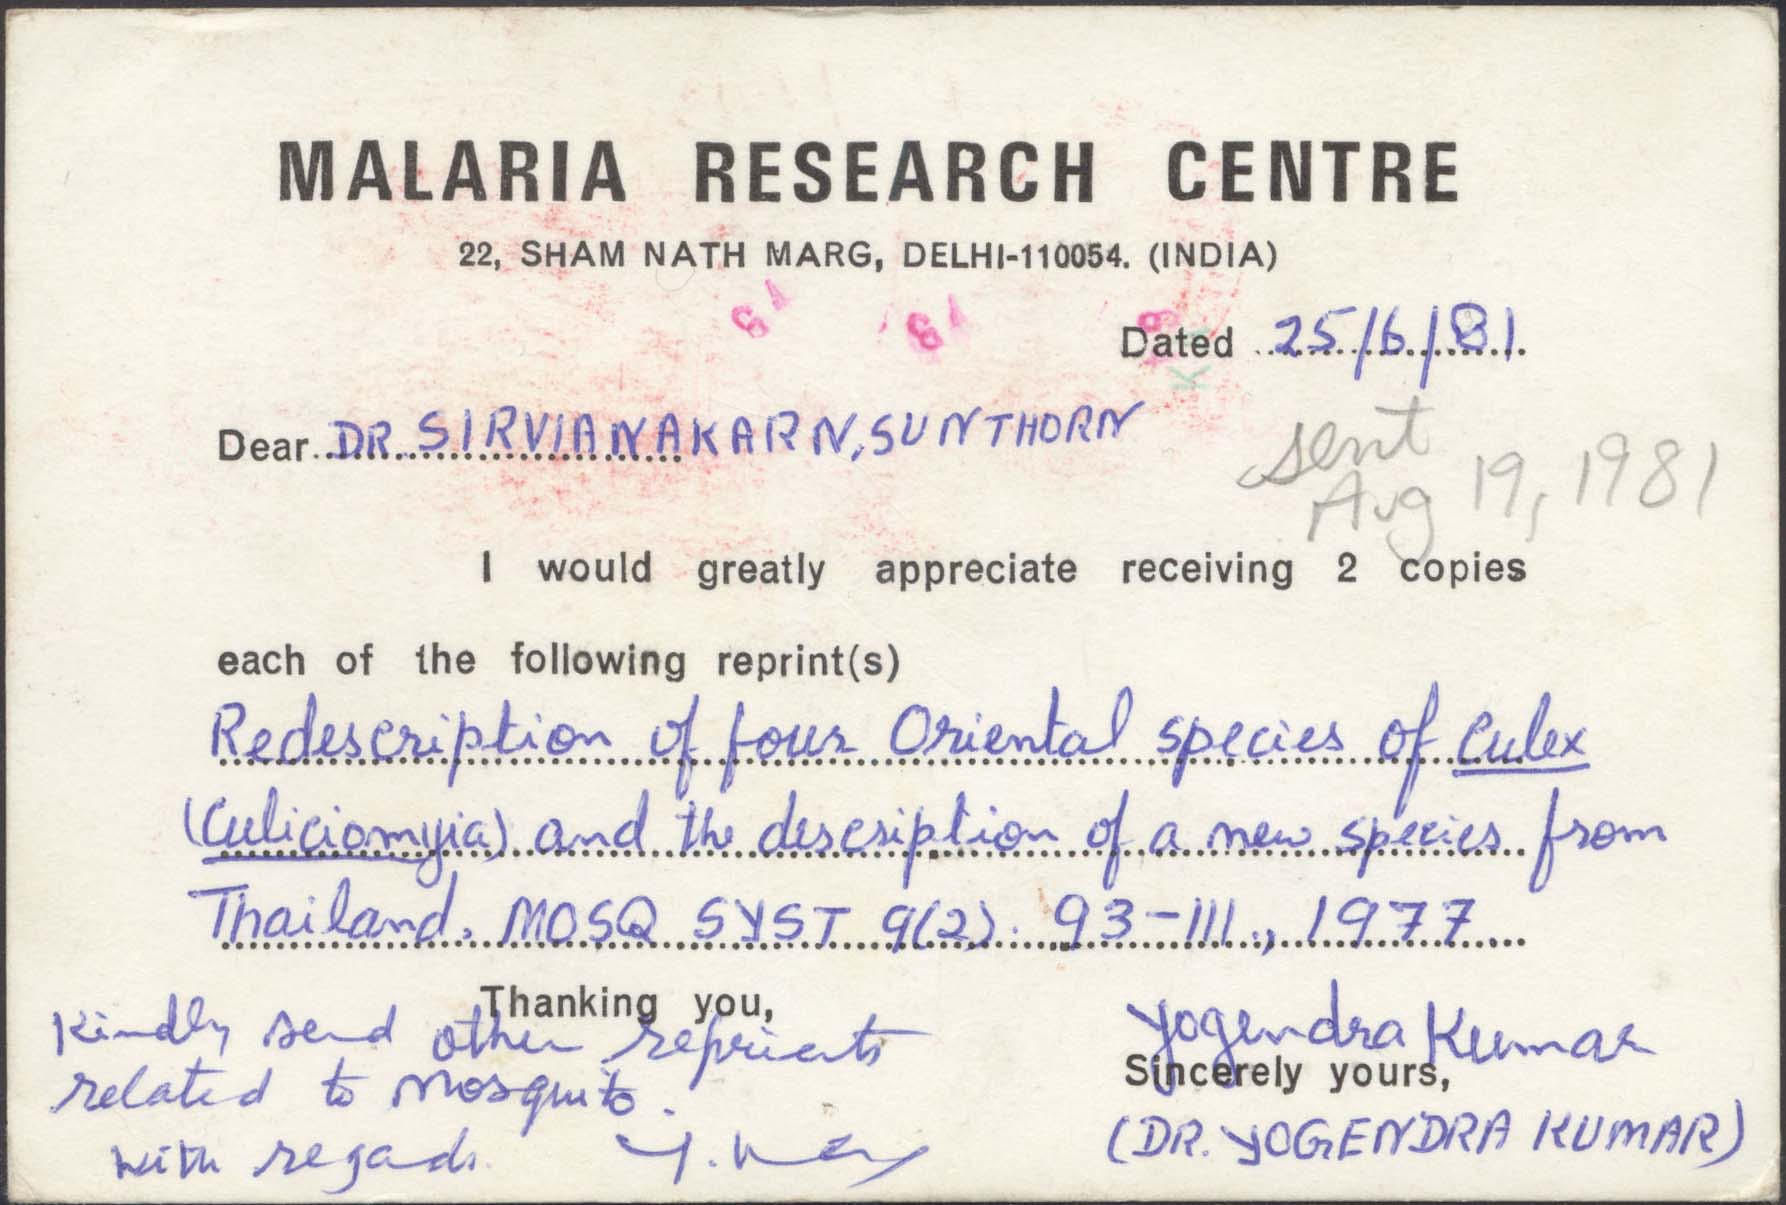 MALARIA RESEARCH CENTRE
22, SHAM NATH MARG, DELHI-110054. (INDIA)
Dated 25/6/81
Dear DR. SIRVIANAKARN, SUNTHORN
sent
Aug 19, 1981
I would greatly appreciate receiving 2 copies
each of the following reprint(s)
Redescription of four Oriental species of Culex
(Culiciomyia) and the description of a new species from
Thailand. MOSQ SYST 9(2). 93-111., 1977
Thanking you,
Kindly send other reprients
related to Mosquito.
with regads.
Yogendra Kumar
Sincerely yours,
(DR. YOGENDRA KUMAR)